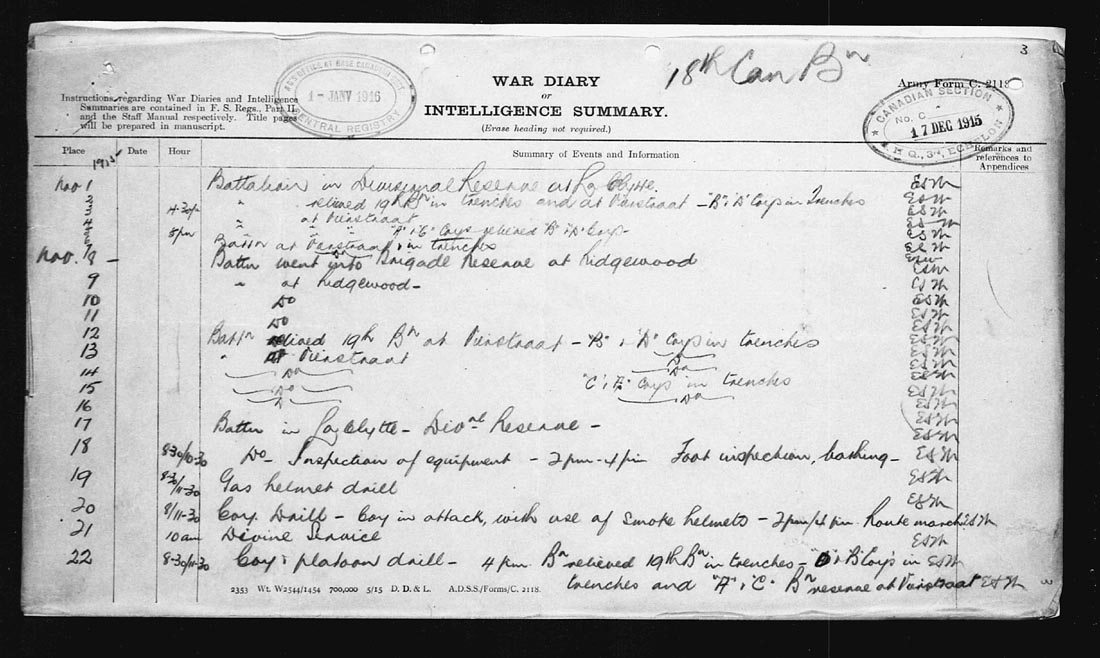 3
18th Can Bn
WAR DIARY
or
INTELLIGENCE SUMMARY.
(Erase heading not required.)
Army Form C. 2118
Instructions regarding War Diaries and Intelligence
Summaries are contained in F. S. Regs., Part II.
and the Staff Manual respectively. Title pages
will be prepared in manuscript.
BASE
1 - JANV 1916
CENTRAL REGISTRY
CANADIAN SECTION
No. C
17 DEC 1915
H.Q., 3rd ECHELON
Place Date Hour Summary of Events and Information Remarks and
references to
Appendices
1915
Nov 1 Battalion in Divisional Reserve at La Clytte.
2 " relieved 19th Bn in trenches and at Vierstraat - "B" & "D" Coys in Trenches
3 4-30p " at Vierstraat
4 8pm " " "A" & "C" Coys relieved "B" & "D" Coys
Battn at Vierstraat & in trenches
Nov. 8 - Battn went into Brigade Reserve at Ridgewood
9 " at Ridgewood -
10 Do
11 Do
12 Battn relieved 19th Bn at Vierstraat - "B" & "D" Coys in trenches
13 " at Vierstraat Do
14 Do Do
15 Do "C" & "A" Coys in trenches
16 Do Do
17 Battn in La Clytte - Divnal Reserve -
18 8-30/10-30 Do - Inspection of equipment - 2pm-4pm Foot inspection, bathing -
19 8-30/11-30 Gas helmet drill
20 8/11-30 Coy. Drill - Coy in attack, with use of smoke helmets - 2pm/4pm Route march ESW
21 10am Divine Service
22 8-30/11-30 Coy & platoon drill - 4pm Bn relieved 19th Bn in trenches - "D" & "B" Coys in
trenches and "A" & "C" Bn reserve at Vierstraat
2353 Wt. W2544/1454 700,000 5/15 D. D. & L. A.D.S.S./Forms/C. 2118.